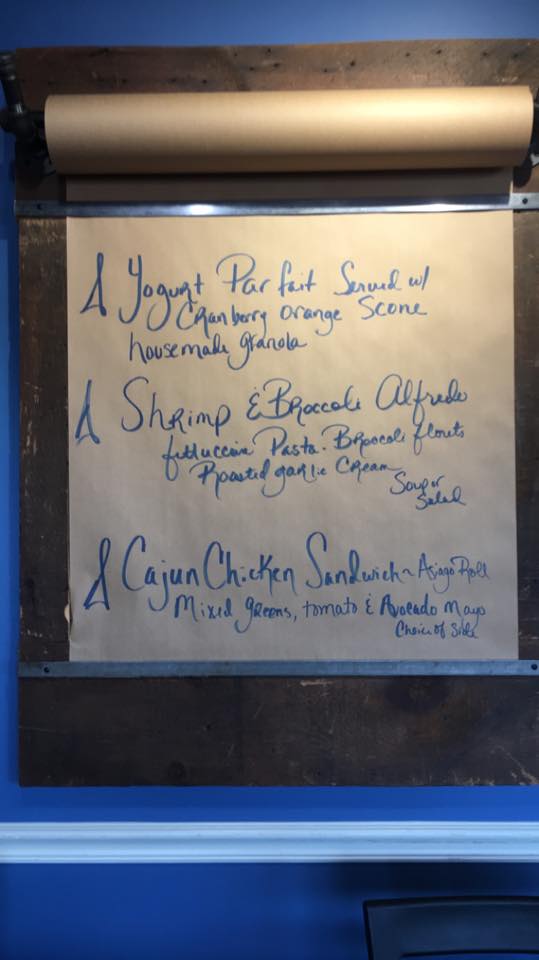 Yogurt Parfait Served w/
Cranberry Orange Scone
housemade granola
Shrimp & Broccoli Alfredo
fettuccine Pasta. Broccoli florets
Roasted garlic Cream
Soup or
Salad
Cajun Chicken Sandwich ~ Asiago Roll
Mixed greens, tomato & Avocado Mayo
Choice of Side